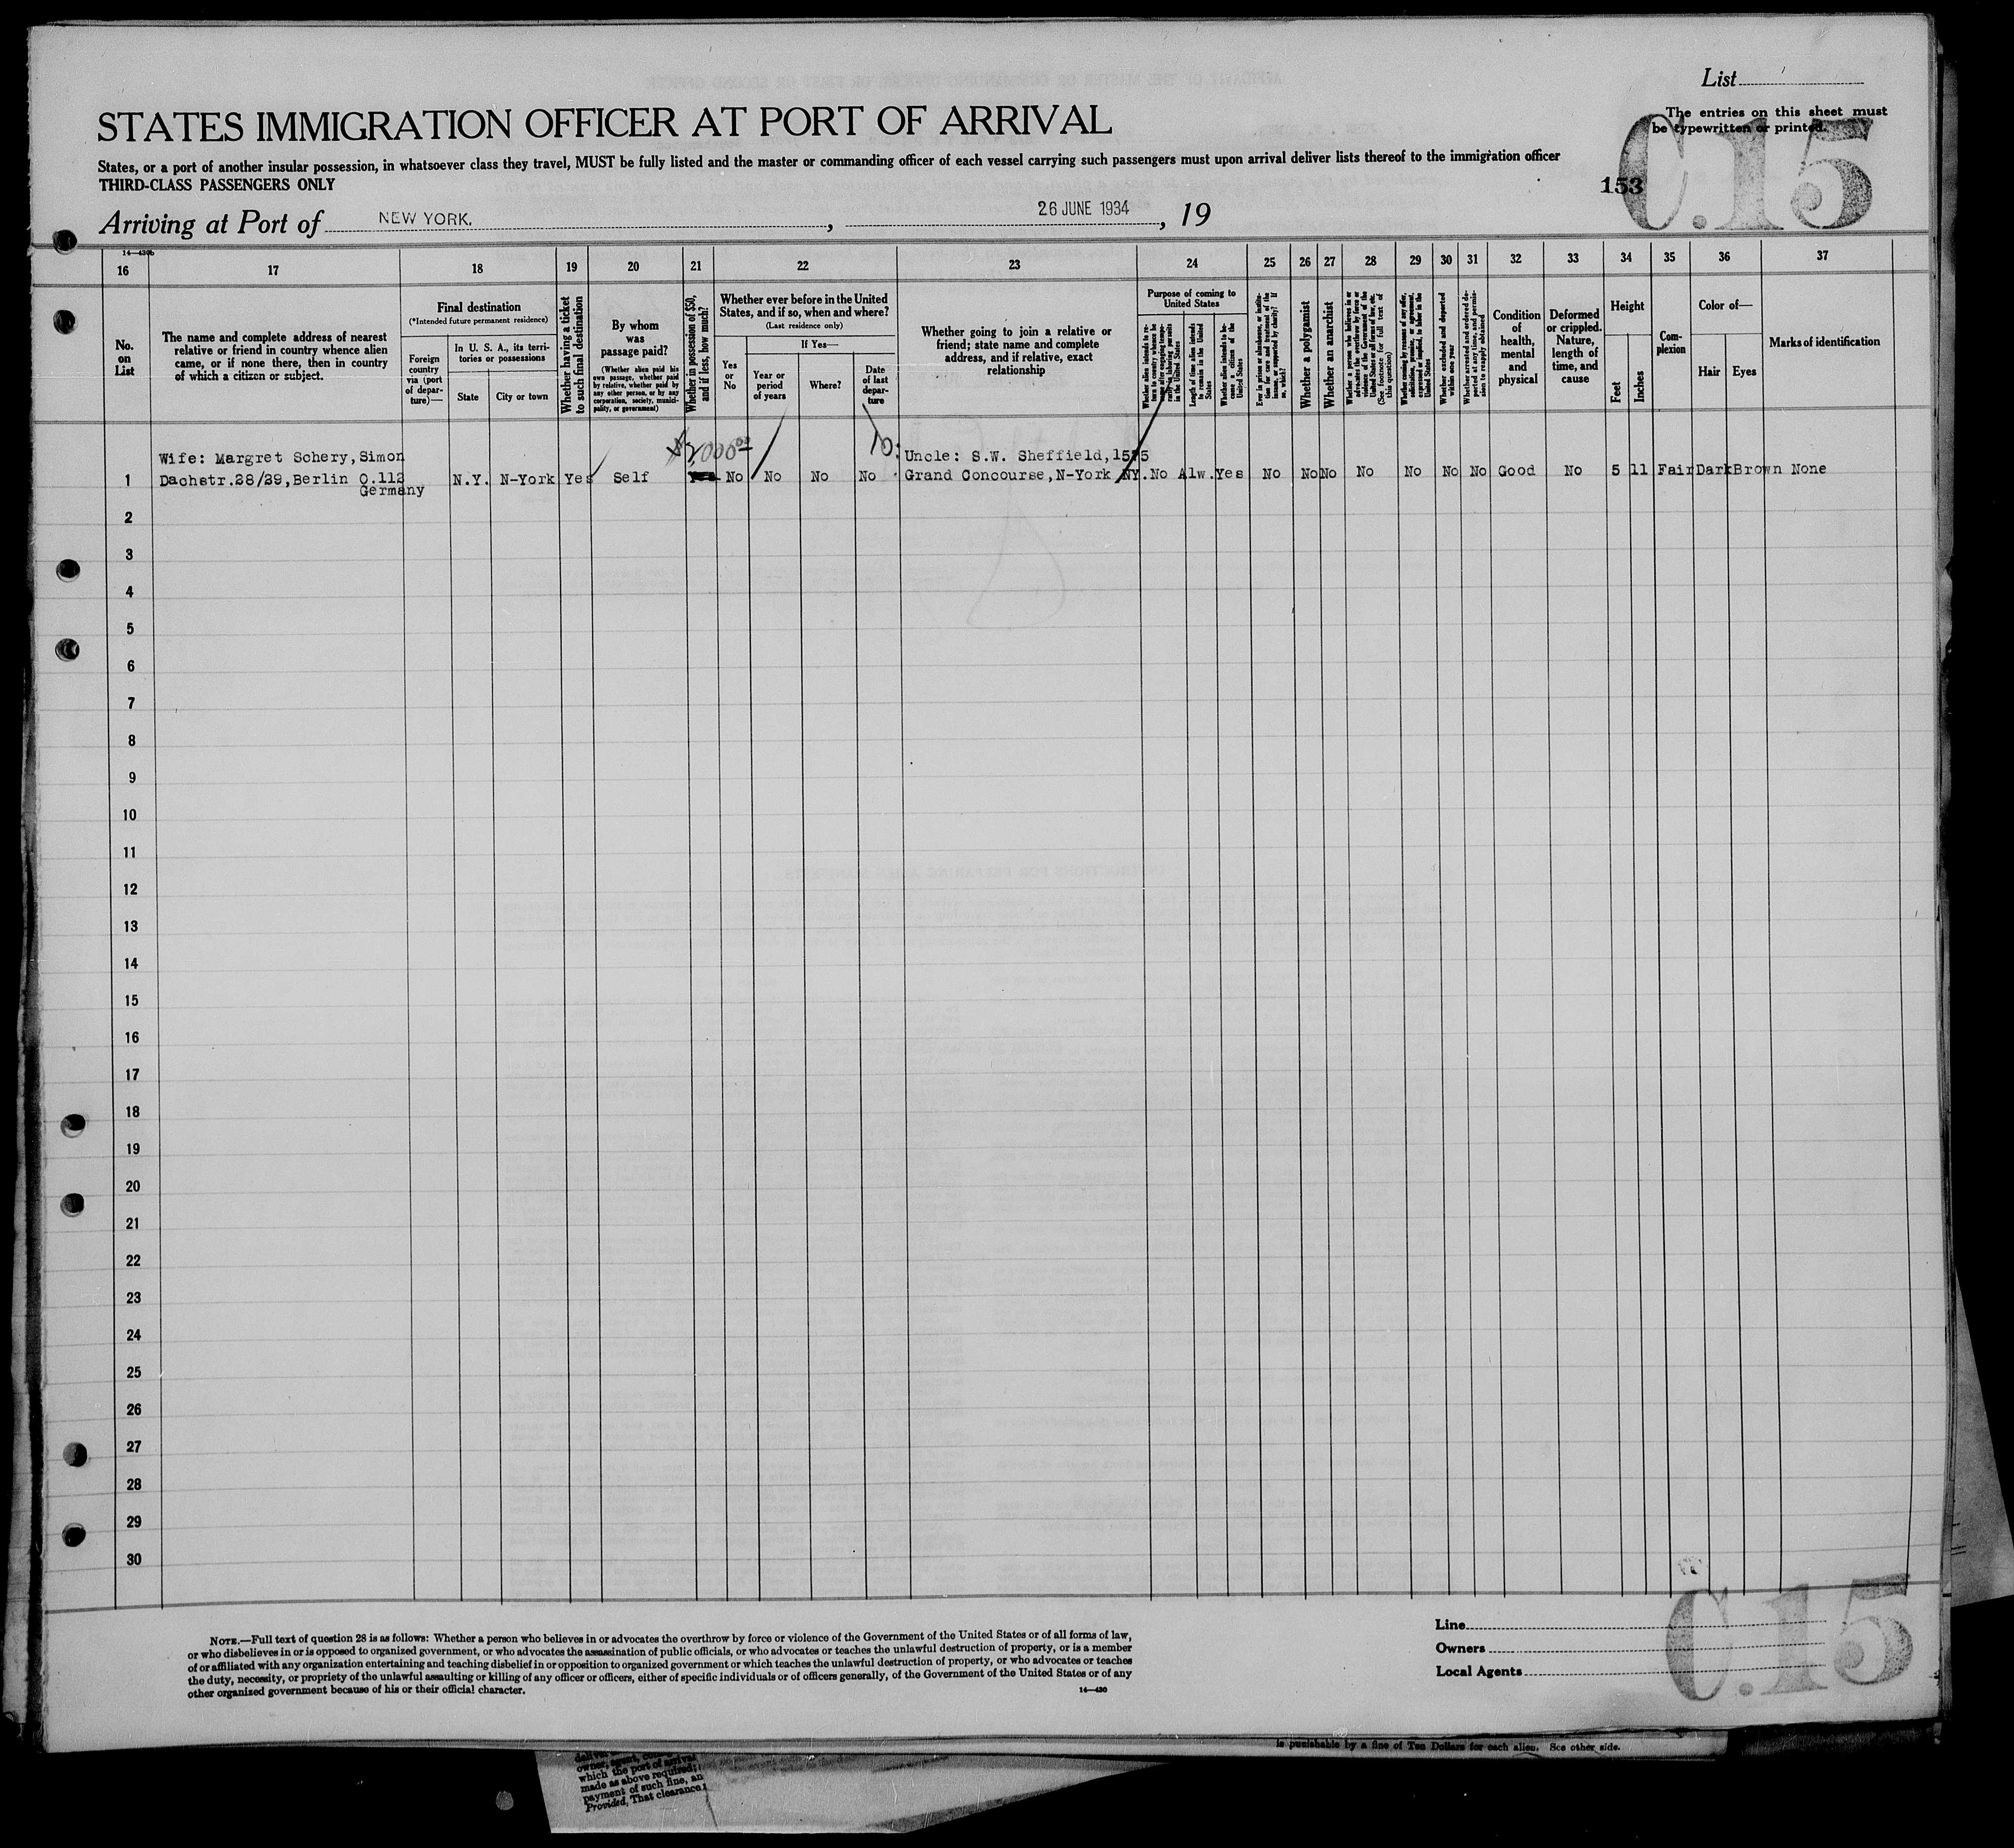 List
STATES IMMIGRATION OFFICER AT PORT OF ARRIVAL
The entries on this sheet must
be typewritten or printed.
C.15
States, or a port of another insular possession, in whatsoever class they travel, MUST be fully listed and the master or commanding officer of each vessel carrying such passengers must upon arrival deliver lists thereof to the immigration officer
THIRD-CLASS PASSENGERS ONLY
153
Arriving at Port of NEW YORK. , 26 JUNE 1934 , 19
14—430b
16 17 18 19 20 21 22 23 24 25 26 27 28 29 30 31 32 33 34 35 36 37
No.
on
List
The name and complete address of nearest
relative or friend in country whence alien
came, or if none there, then in country
of which a citizen or subject.
Final destination
(*Intended future permanent residence)
Foreign
country
via (port
of depar-
ture)—
In U. S. A., its terri-
tories or possessions
State
City or town
Whether having a ticket
to such final destination
By whom
was
passage paid?
(Whether alien paid his
own passage, whether paid
by relative, whether paid by
any other person, or by any
corporation, society, munici-
pality, or government)
Whether in possession of $50,
and if less, how much?
Whether ever before in the United
States, and if so, when and where?
(Last residence only)
Yes
or
No
If Yes—
Year or
period
of years
Where?
Date
of last
depar-
ture
Whether going to join a relative or
friend; state name and complete
address, and if relative, exact
relationship
Purpose of coming to
United States
Length of time alien intends
to remain in the United
States
Whether alien intends to be-
come a citizen of the
United States
Whether a polygamist
Whether an anarchist
(See footnote for full text of
this question)
Whether excluded and deported
within one year
Condition
of
health,
mental
and
physical
Deformed
or crippled.
Nature,
length of
time, and
cause
Height
Feet
Inches
Com-
plexion
Color of—
Hair
Eyes
Marks of identification
$2,000.00
Wife: Margret Schery, Simon
Uncle: S.W. Sheffield, 1575
1 Dachstr.28/29, Berlin O.112 N.Y. N-York Yes Self Yes No No No No Grand Concourse, N-York NY. No Alw. Yes No No No No No No No Good No 5 11 Fair Dark Brown None
Germany
2
3
4
5
6
7
8
9
10
11
12
13
14
15
16
17
18
19
20
21
22
23
24
25
26
27
28
29
30
NOTE.—Full text of question 28 is as follows: Whether a person who believes in or advocates the overthrow by force or violence of the Government of the United States or of all forms of law,
or who disbelieves in or is opposed to organized government, or who advocates the assassination of public officials, or who advocates or teaches the unlawful destruction of property, or is a member
of or affiliated with any organization entertaining and teaching disbelief in or opposition to organized government or which teaches the unlawful destruction of property, or who advocates or teaches
the duty, necessity, or propriety of the unlawful assaulting or killing of any officer or officers, either of specific individuals or of officers generally, of the Government of the United States or of any
other organized government because of his or their official character.
14—430
Line
Owners
Local Agents
C.15
is punishable by a fine of Ten Dollars for each alien. See other side.
which the port of arrival
made as above required;
payment of such fine, an
Provided, That clearance